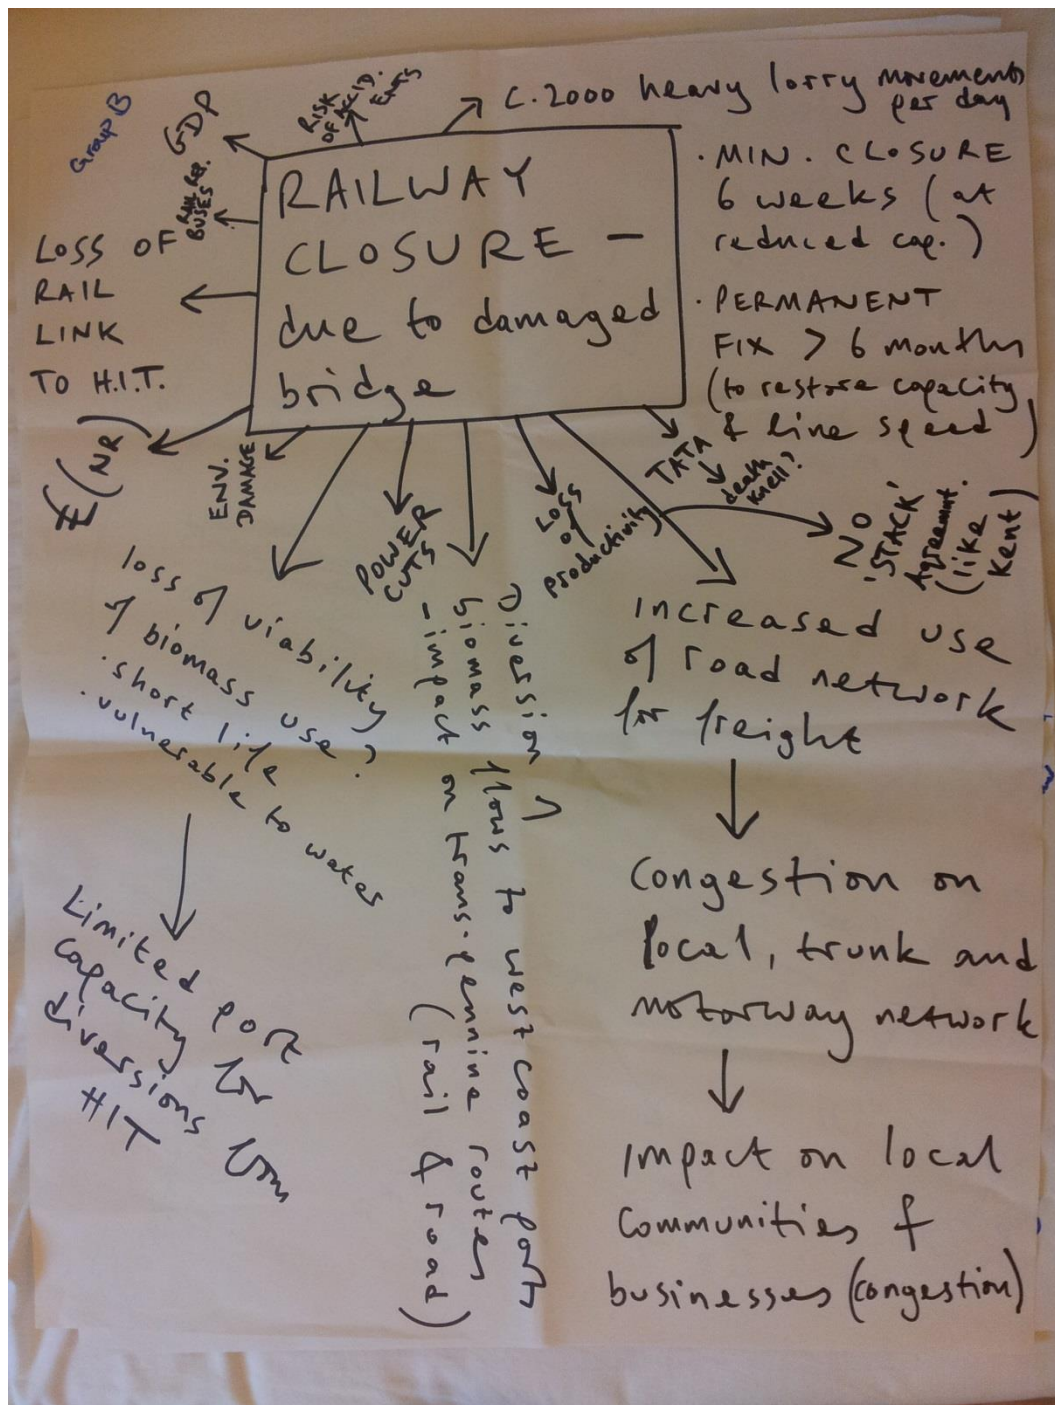 Group B
GDP
RISK
OF ACCID.
ENTS
C.2000 heavy lorry movements
per day
RAIL REP.
BUSES
RAILWAY
CLOSURE –
due to damaged
bridge
· MIN. CLOSURE
6 weeks (at
reduced cap.)
· PERMANENT
FIX > 6 months
(to restore capacity
& line speed)
LOSS OF
RAIL
LINK
TO H.I.T.
£(NR)
ENV.
DAMAGE
POWER
CUTS
LOSS
of
productivity
TATA
death
knell?
NO
'STACK'
Agreemnt.
(like
Kent)
loss of viability
of biomass use?
· short life
· vulnerable to water
Limited port
capacity for
diversions from
HIT
Diversion of
biomass flows to west coast ports
- impact on trans-pennine routes
(rail & road)
increased use
of road network
for freight
Congestion on
local, trunk and
motorway network
impact on local
communities &
businesses (congestion)